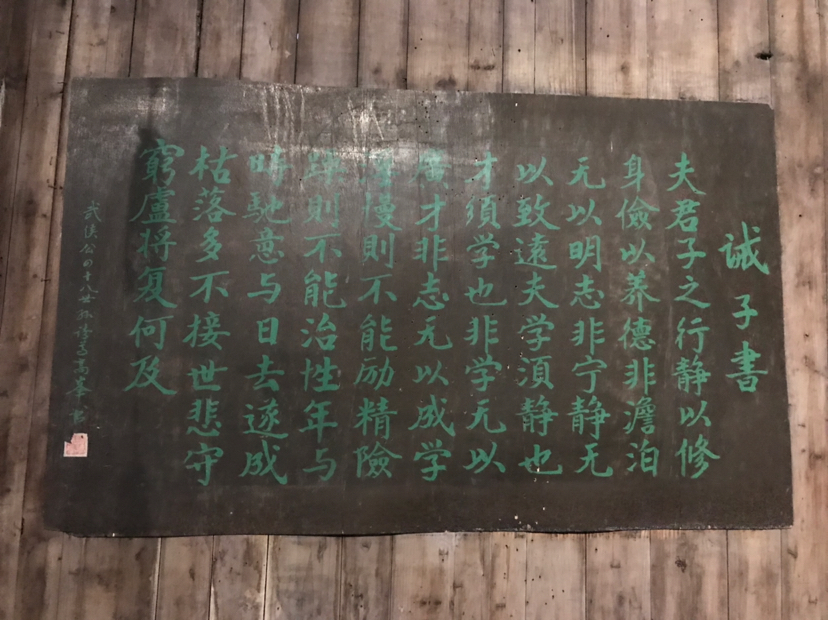 诫子書
夫君子之行静以修
身儉以养德非澹泊
无以明志非宁静无
以致遠夫学須静也
才須学也非学无以
廣才非志无以成学
慢則不能励精險
躁則不能治性年与
時馳意与日去遂成
枯落多不接世悲守
窮廬将复何及
武侯公四十八世孙诸葛高峯